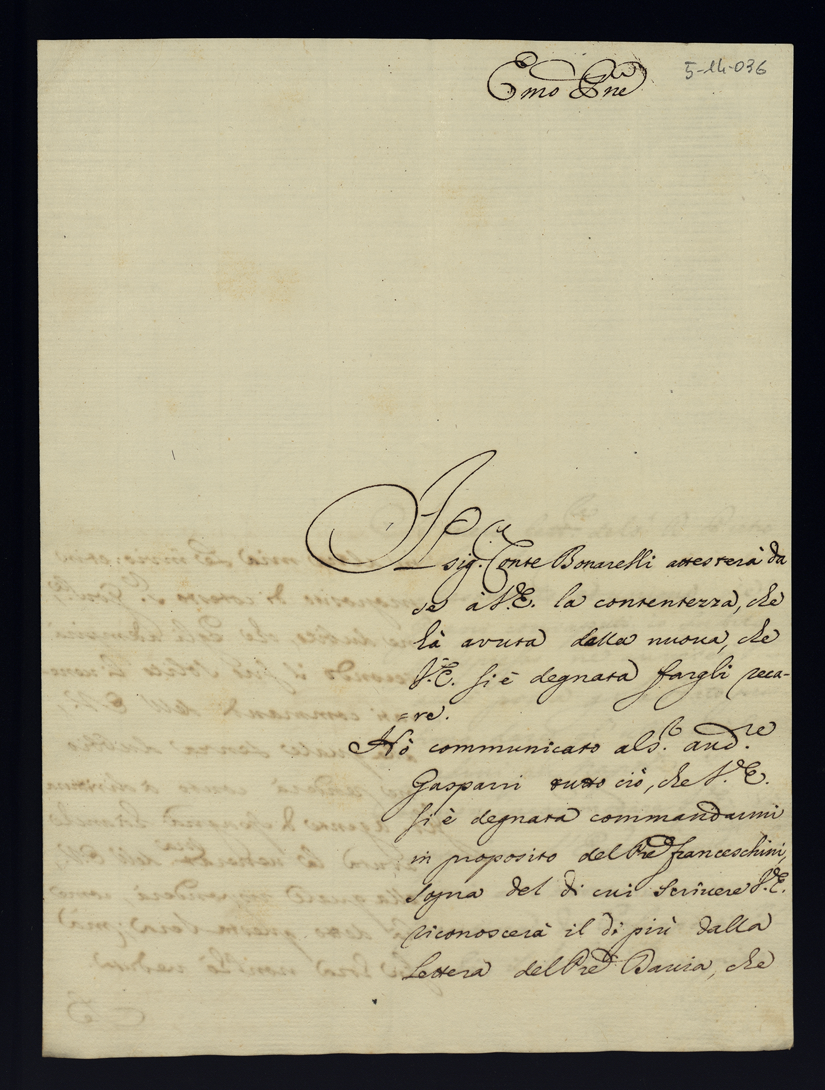 5-14-036
Emo Pne
Il sig.r Conte Bonarelli attesterà da
se à V.E. la contentezza, che
hà avuta della nuova, che
V.E. si è degnata fargli reca-
=re.
Hò communicato al s.r And.re
Gasparri tutto ciò, che V.E.
si è degnata commandarmi
in proposito del Pre Franceschini,
sopra del di cui scrivere V.E.
riconoscerà il di più dalla
Lettera del Pre Davia, che